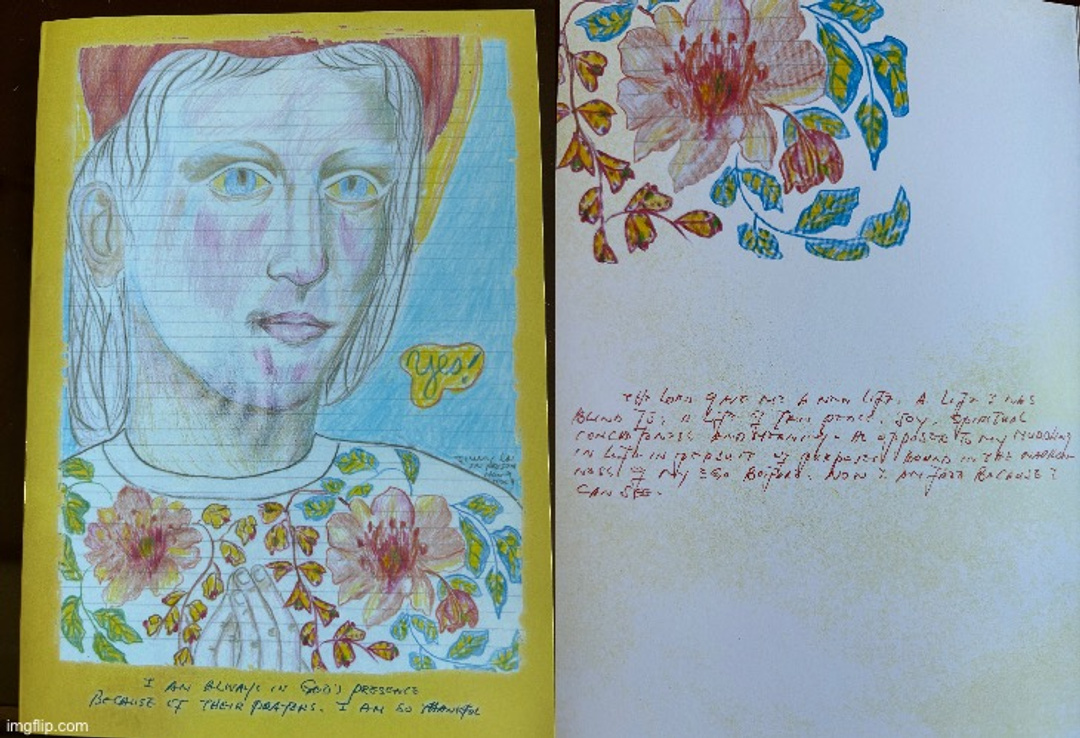 yes!
IN
I AM ALWAYS IN GOD'S PRESENCE
BECAUSE OF THEIR PRAYERS. I AM SO THANKFUL
THE LORD GAVE ME A NEW LIFE. A LIFE I WAS
BLIND TO; A LIFE OF TRUE PEACE, JOY, SPIRITUAL
AND MEANING. AS OPPOSED TO MY
IN LIFE IN PURSUIT OF BOUND IN THE NARROW-
NESS OF MY EGO BEFORE. NOW I AM FREE BECAUSE I
CAN SEE.
imgflip.com